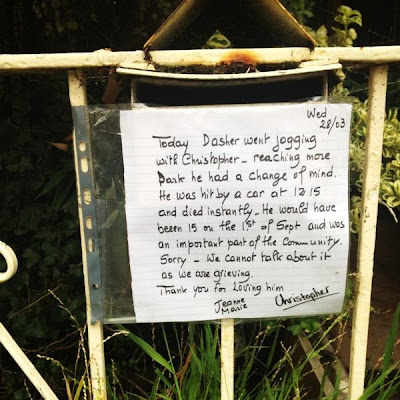 Wed
28/03
Today Dasher went jogging
with Christopher - reaching more
Park he had a change of mind.
He was hit by a car at 12.15
and died instantly - He would have
been 15 on the 1st of Sept and was
an important part of the Community.
Sorry - We cannot talk about it
as we are grieving.
Thank you for Loving him
Jeanne
Marie
Christopher